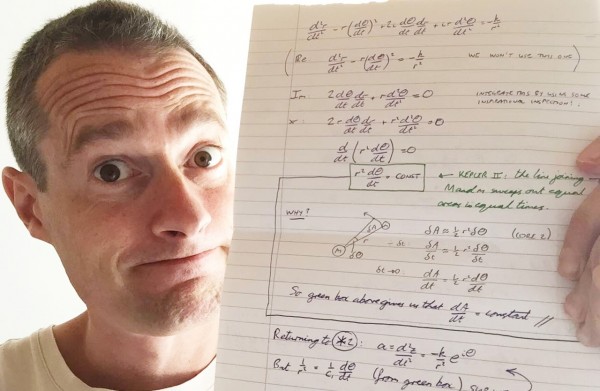 d²r/dt² - r(dθ/dt)² + 2i dθ/dt dr/dt + ir d²θ/dt² = -k/r²
(Re d²r/dt² - r(dθ/dt)² = -k/r² WE WON'T USE THIS ONE)
Im 2 dθ/dt dr/dt + r d²θ/dt² = 0 INTEGRATE THIS BY SOME INSPIRATIONAL INSPECTION!
×r: 2r dθ/dt dr/dt + r² d²θ/dt² = 0
d/dt (r² dθ/dt) = 0
r² dθ/dt = CONST ← KEPLER II: the line joining
M and m sweeps out equal
areas in equal times.
WHY?
M r δθ δA m
δA = ½ r² δθ (CORE 2)
÷ δt: δA/δt = ½ r² δθ/δt
δt→0 dA/dt = ½ r² dθ/dt
So green box above gives us that dA/dt = constant //
Returning to *2: a = d²z/dt² = -k/r² e^iθ
But 1/r² = 1/c₁ dθ/dt (from green box)